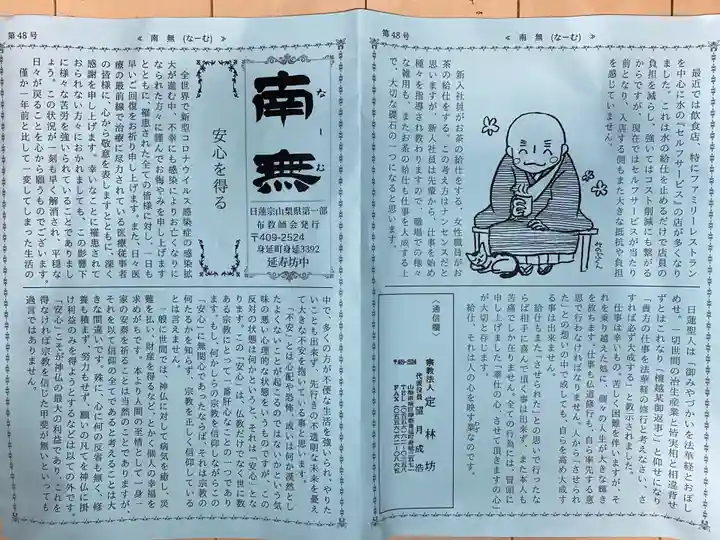 第48号
≪ 南 無 (なーむ) ≫
南無
なーむ
日蓮宗山梨県第一部
布教師会発行
〒409-2524
身延町身延3392
延寿坊中
安心を得る
全世界で新型コロナウイルス感染症の感染拡
大が進む中、不幸にも感染によりお亡くなりに
なられた方々に謹んでお悔やみを申し上げます
とともに、罹患された全ての皆様に対し、一日も
早いご回復をお祈り申し上げます。また、日々医
療の最前線で治療に尽力されている医療従事者
の皆様に、心から敬意を表しますとともに、深く
感謝を申し上げます。幸いなことに罹患されて
おられない方々におかれましても、この影響下
に様々な苦労を強いられていることでありまし
ょう。この状況が一刻も早く解消され、平穏な
日々が戻ることを心から願うものでございます。
僅か一年前と比して一変してしまった生活の
中で、多くの方が不便な生活を強いられ、やりた
いことも出来ず、先行きの不透明な未来を憂え
て大きな不安を抱いている事と思います。
「不安」とは心配や恐怖、或いは何か漠然とし
たよくないことが起こるのではないかという気
味の悪い心理的な状態をいうものですが、この
反対の状態は何かというと、それは「安心」であ
ります。この「安心」は、仏教だけでなく世に数
ある宗教にとって一番肝心なことの一つであり
ます。もし、何かしらの宗教を信仰しながらこの
「安心」に無関心であったならば、それは宗教の
何たるかを知らず、宗教を正しく信仰している
とは言えません。
一般に世間では、神仏に対して病気を癒し、災
難を払い、財産を得るなど、とかく個人の幸福を
求めがちです。本より人間の正情として一身一
家の安泰を祈ることは当然のことでありますが、
それをもって信仰の全てであると考えることは大
きな間違いです。殊に、心に何の反省も無く、修
養も積まず、努力もせず、願いの凡てを神仏に掛
け利益のみを得ようとするなどは以ての外です。
「安心」こそが神仏の最大の利益であり、これを
得なければ宗教を信じた甲斐が無いといっても
過言ではありません。
第48号
≪ 南 無 (なーむ) ≫
最近では飲食店　特にファミリーレストラン
を中心に水の『セルフサービス』の店が多くなり
ました。これは水の給仕を止めるだけで店員の
負担を減らし、強いてはコスト削減にも繋がる
からですが、現在ではセルフサービスが当たり
前となり、入店する側もまた大きな抵抗や負担
を感じていません。
新入社員がお茶の給仕をする、女性職員がお
茶の給仕をする、この考え方はナンセンスだと
思いますが、新入社員は先輩から、仕事を始め
種々を指導され教わりますので、職場での様々
な雑用も、またお茶の給仕も仕事を大成する上
で大切な礎石の一つになると思います。
日蓮聖人は「御みやづかいを法華経とおぼし
めせ。一切世間の治生産業と皆実相と相違背せ
ずとはこれなり（檀越某御返事）」と仰せになり
「貴方の仕事を法華経の修行と考えなさい、さ
すれば必ず大成する」と教示されました。
仕事は辛いもの「苦しく」困難を伴いますが、そ
れを乗り越えた姫に、個々の人生が大きな輝き
を放ちます。仕事も仏道修行も、自ら率先する意
思で行わなければなりません。人から「させられ
た」との想いの中で成しても、自らを高め大成す
る事は出来ません。
給仕もまた「させられた」との思いで行ったな
らば相手に喜んで頂く事は出来ず、また本人も
苦痛でしか在りません。全ての行為には、冒頭に
申し上げました「奉仕の心、させて頂きますの心」
が大切と存じます。
給仕、それは人の心を映す業なのです。
〈通信欄〉
〒409-2524
宗教法人　定　林　坊
代表役員　望　月　成　浩